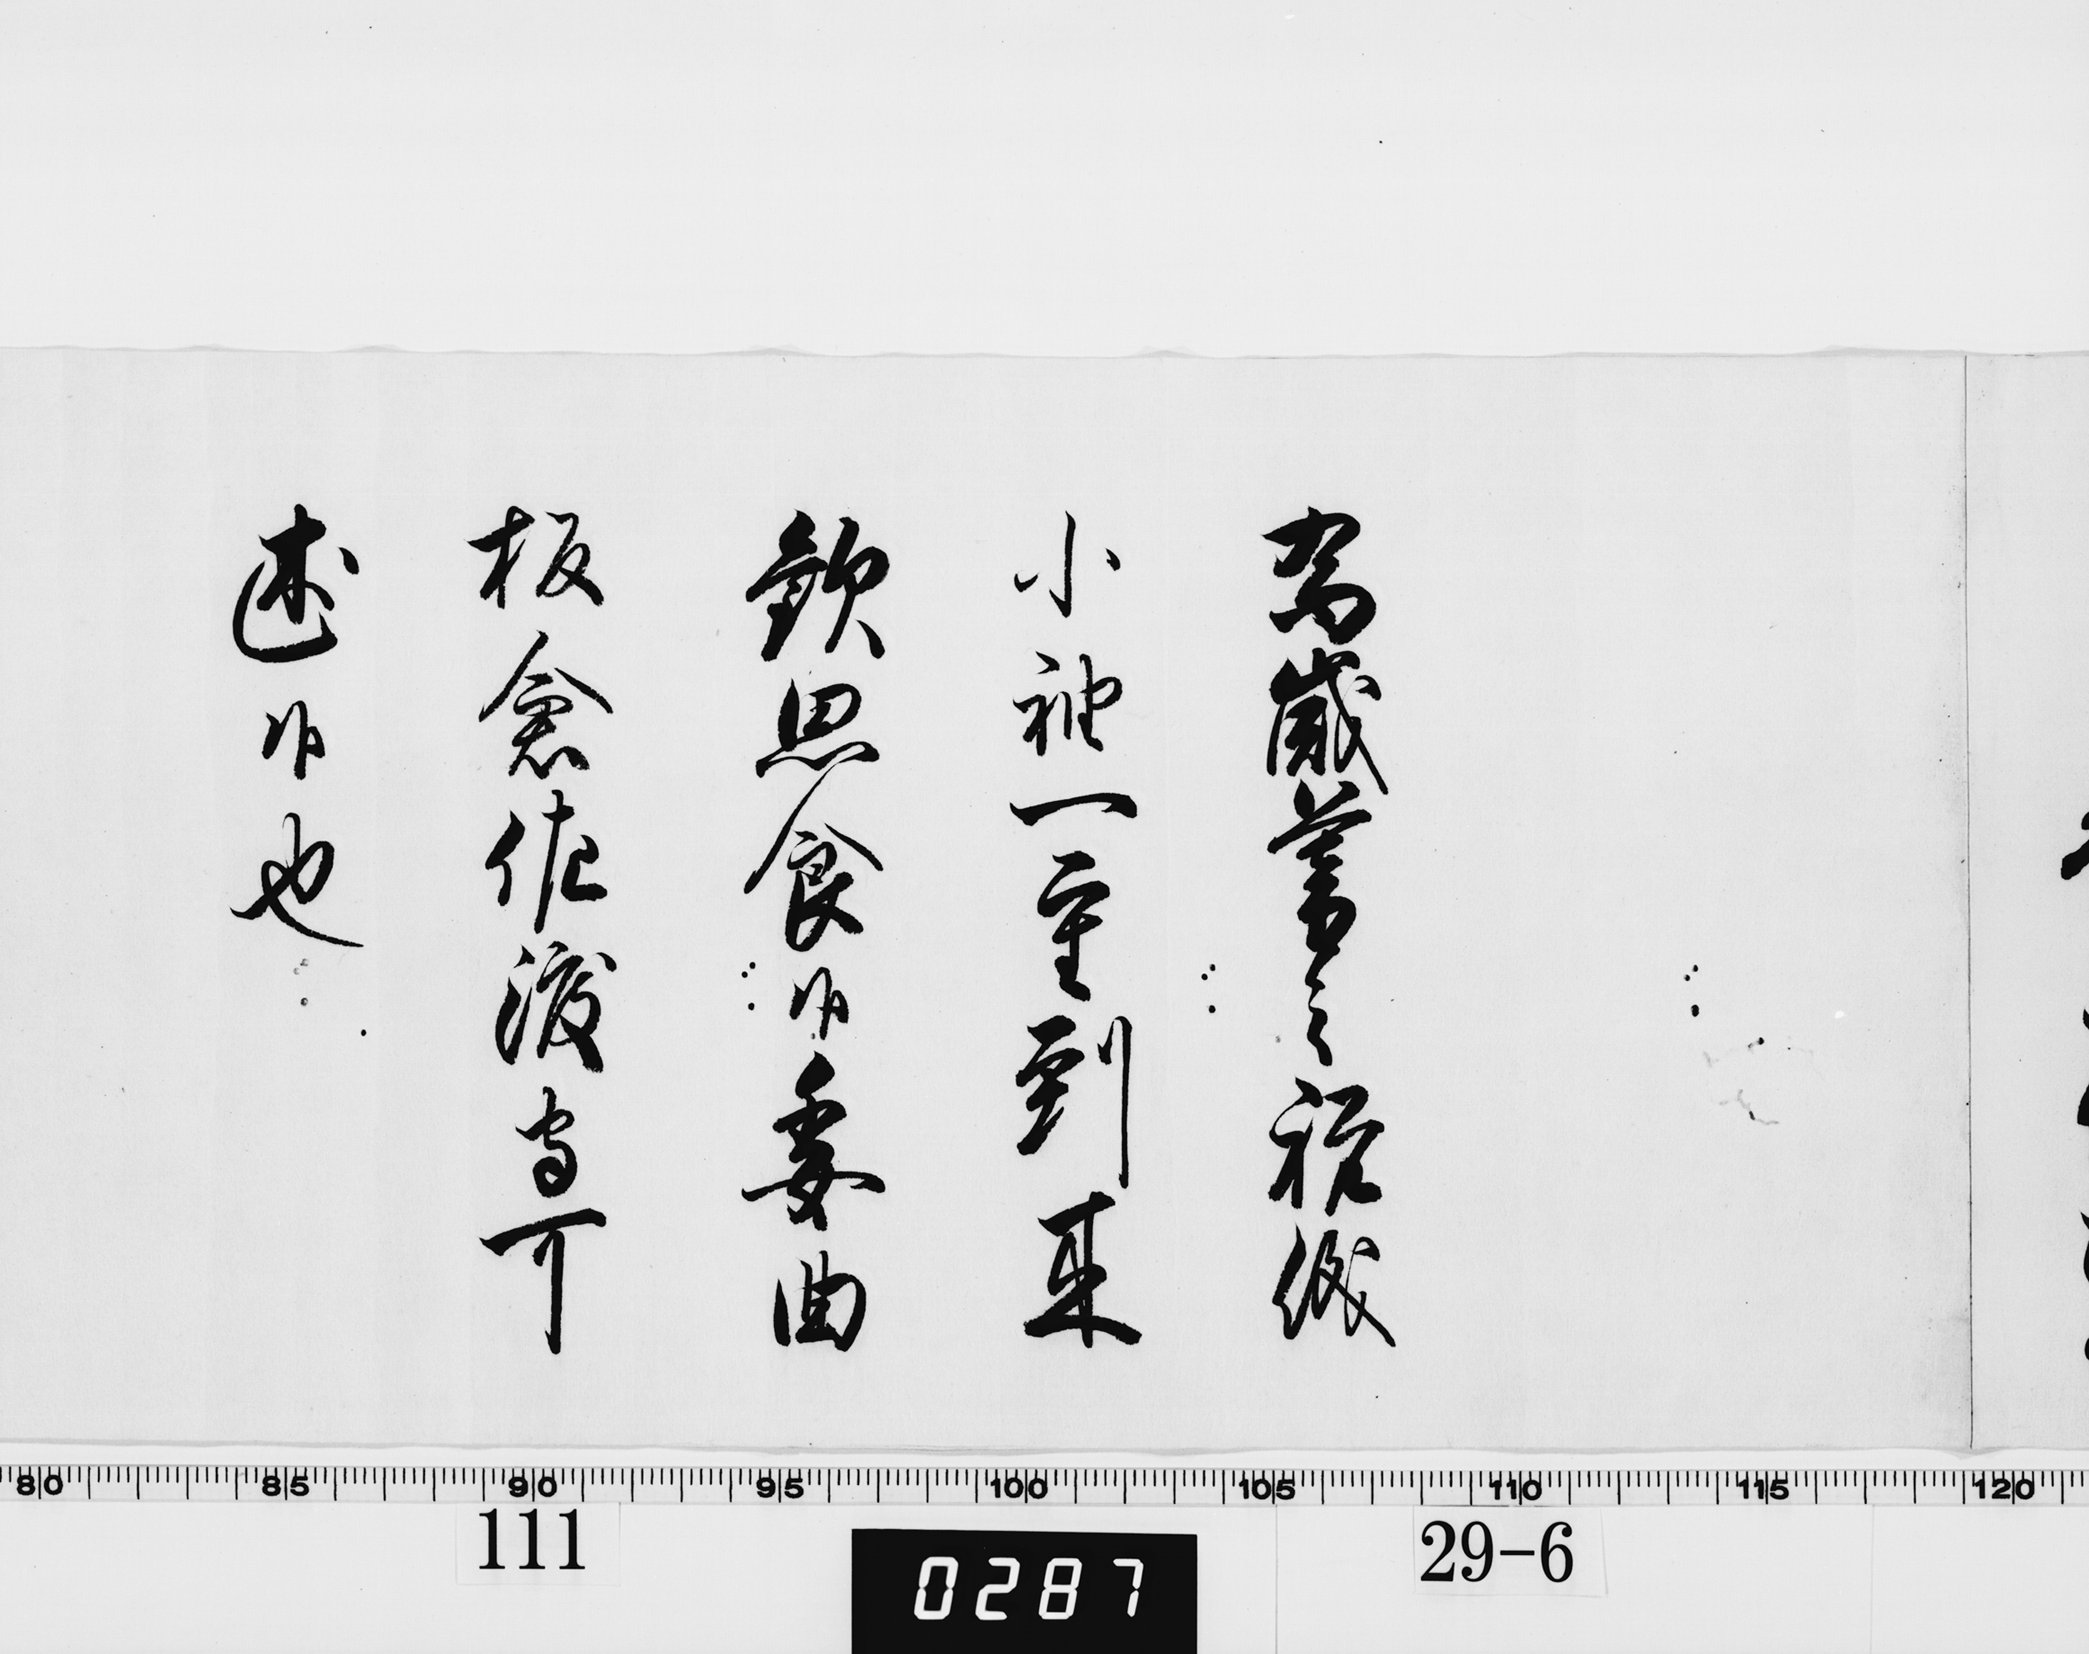 為歳暮之祝儀
小袖一重到来
歓思食候委曲
板倉佐渡守可
述候也
80 85 90 95 100 105 110 115 120
111
0287
29-6